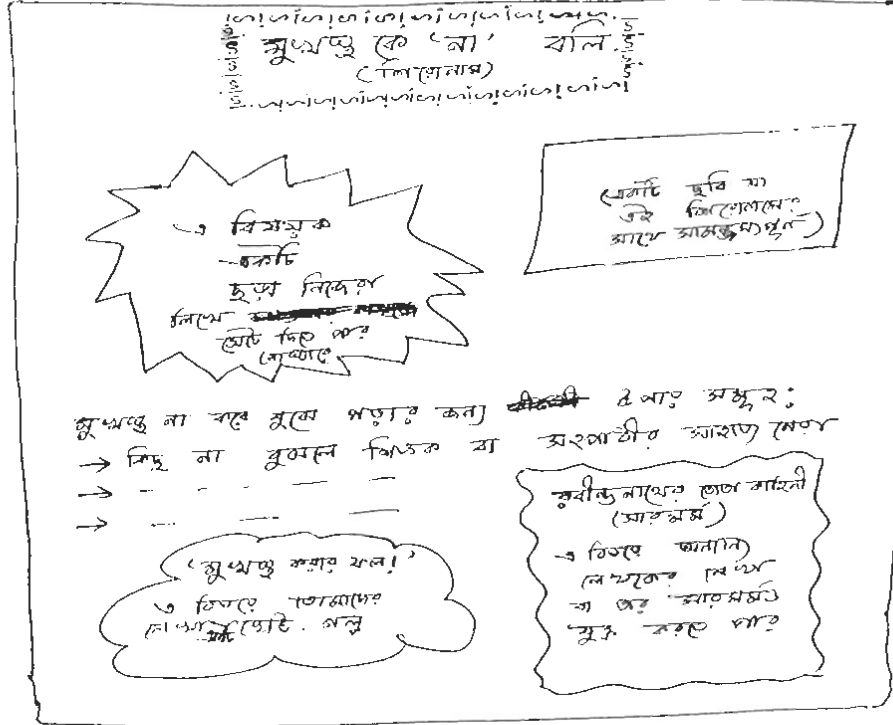 মুখস্থ কে 'না' বলি
(শিরোনাম)
এ বিষয়ক
একটি
ছড়া নিজেরা
লিখে
সেটে দিতে পার
পোস্টারে
(একটি ছবি যা
এই শিরোনামের
সাথে সামঞ্জস্যপূর্ণ)
মুখস্থ না করে বুঝে পড়ার জন্য উপায় সমূহ:
→ কিছু না বুঝলে শিক্ষক বা সহপাঠীর সাহায্য নেয়া
→
→
'মুখস্থ করার ফল!'
এ বিষয়ে তোমাদের
লেখা ছোট গল্প
রবীন্দ্রনাথের তোতা কাহিনী
(সারমর্ম)
এ বিষয়ে অন্যান্য
লেখকের লেখা
বা তার সারমর্মও
যুক্ত করতে পার